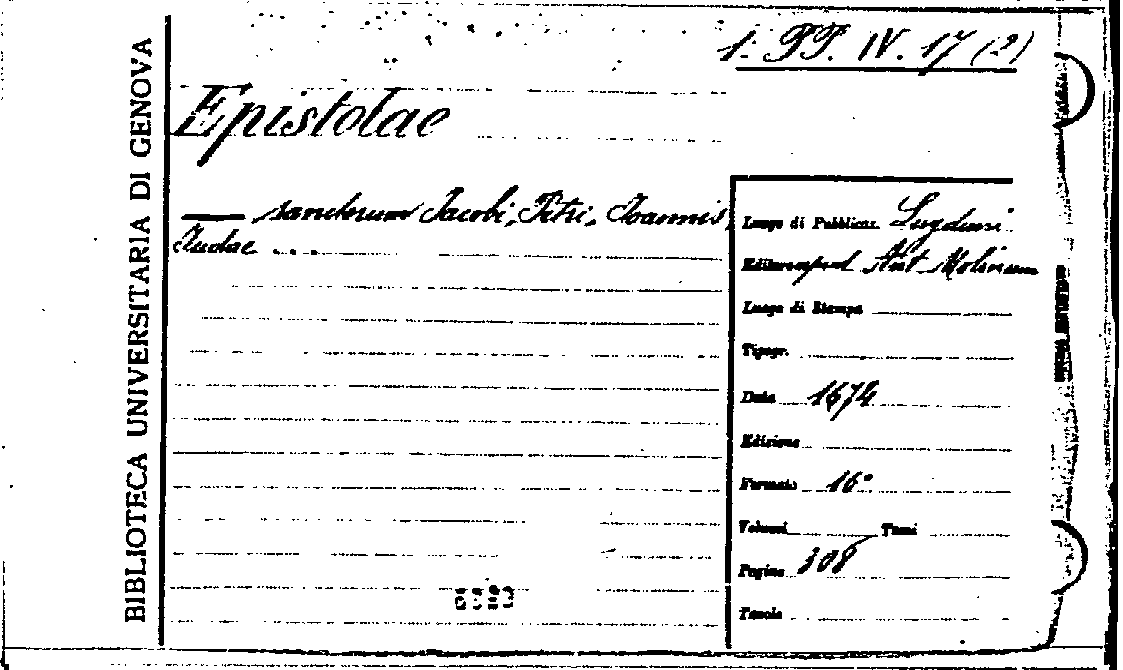 BIBLIOTECA UNIVERSITARIA DI GENOVA
1. PP. IV. 17 (2)
Epistolae
—— sanctorum Jacobi, Petri, Joannis,
Judae ...
Luogo di Pubblicaz. Lugduni
Editore apud Ant. Molinum
Luogo di Stampa
Tipogr.
Data 1674
Edizione
Formato 16°
Volumi Tomi
Pagine 308
Tavole